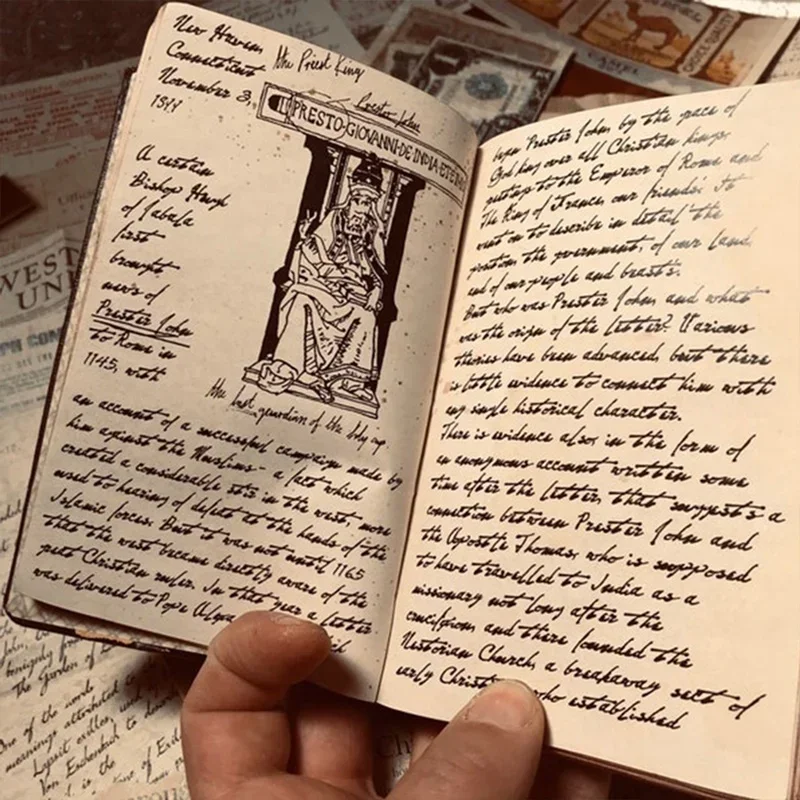 New Haven
Connecticut
November 3,
19
the Priest King
Prester John
PRESTO·GIOVANNI·DE·INDIA·ETER
A certain
Bishop Hugh
of Jabala
first
brought
news of
Prester John
to Rome in
1145, with
the last guardian of the holy cup
an account of a successful campaign made by
him against the Muslims - a fact which
created a considerable stir in the west, more
used to hearing of defeat at the hands of the
Islamic forces. But it was not until 1165
that the west became directly aware of the
Christian ruler. In that year a letter
was delivered to Pope
began Prester John, by the grace of
God king over all Christian kings,
greetings to the Emperor of Rome and
The King of France, our friends. It
went on to describe in detail the
position, the government, of our land,
and of our people and beasts.
But who was Prester John, and what
was the origin of the letter? Various
theories have been advanced, but there
is little evidence to connect him with
any single historical character.
There is evidence also, in the form of
an anonymous account written some
time after the letter, that suggests a
connection between Prester John and
the Apostle Thomas, who is supposed
to have travelled to India as a
missionary not long after the
crucifixion, and there founded the
Nestorian Church, a breakaway sect of
early who established
WEST
UN
The Garden of
One of the words
meanings attributed to